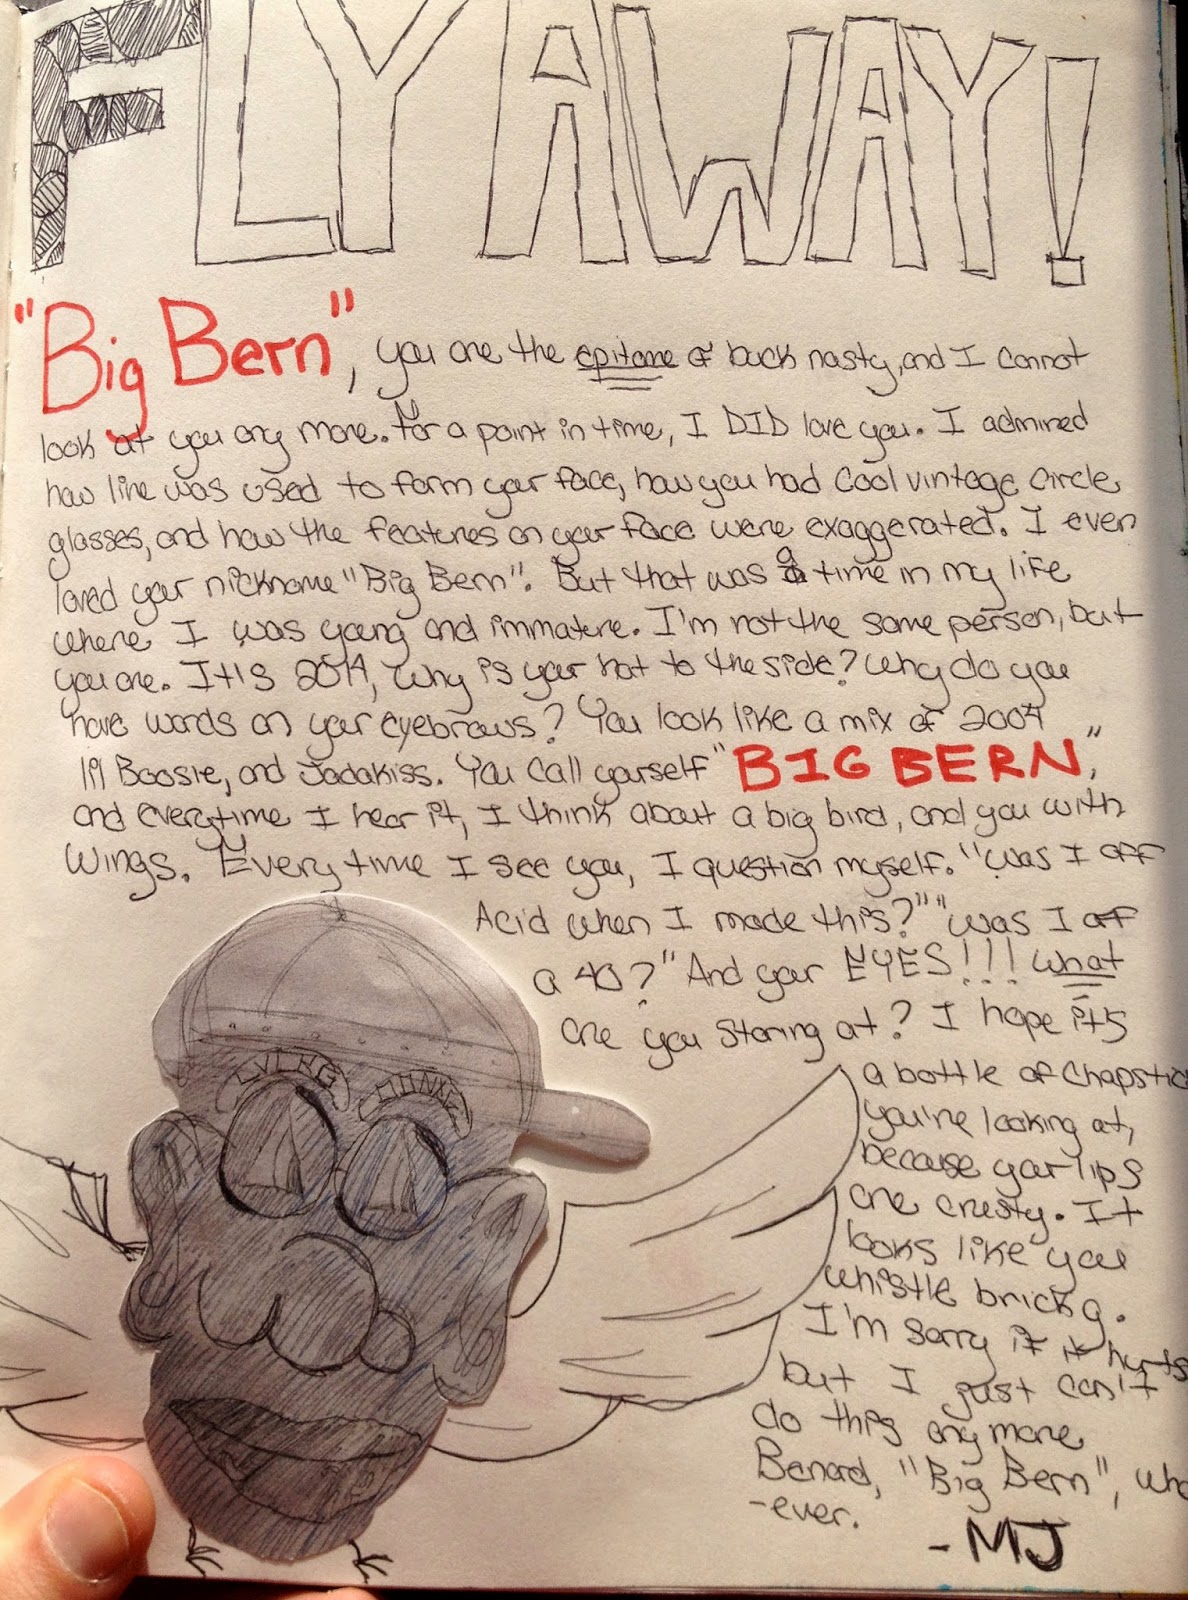 FLY AWAY!
"Big Bern", you are the epitome of buck nasty, and I cannot
look at you any more. For a point in time, I DID love you. I admired
how line was used to form your face, how you had cool vintage circle
glasses, and how the features on your face were exaggerated. I even
loved your nickname "Big Bern". But that was a time in my life
where I was young and immature. I'm not the same person, but
you are. It's 2014, why is your hat to the side? Why do you
have words on your eyebrows? You look like a mix of 2004
lil Boosie, and Jadakiss. You call yourself "BIG BERN",
and everytime I hear it, I think about a big bird, and you with
wings. Every time I see you, I question myself. "Was I off
Acid when I made this?" "Was I off
a 40?" And your EYES!!! What
are you staring at? I hope it's
a bottle of chapstic
you're looking at,
because your lips
are crusty. It
looks like you
whistle brick g.
I'm sorry if it hurts
but I just can't
do this any more
Benard, "Big Bern", who
-ever.
-MJ
LVING